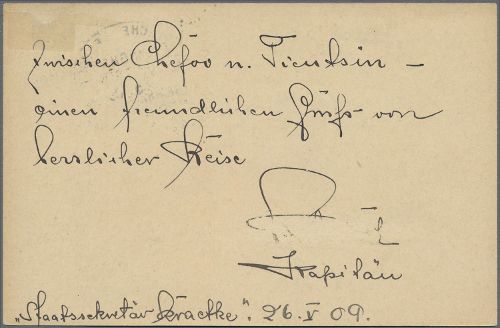 zwischen Chefoo u. Tientsin –
einen freundlichen Gruß von
herrlicher Reise
Kapitän
„Staatssekretär Kraetke". 26. V 09.